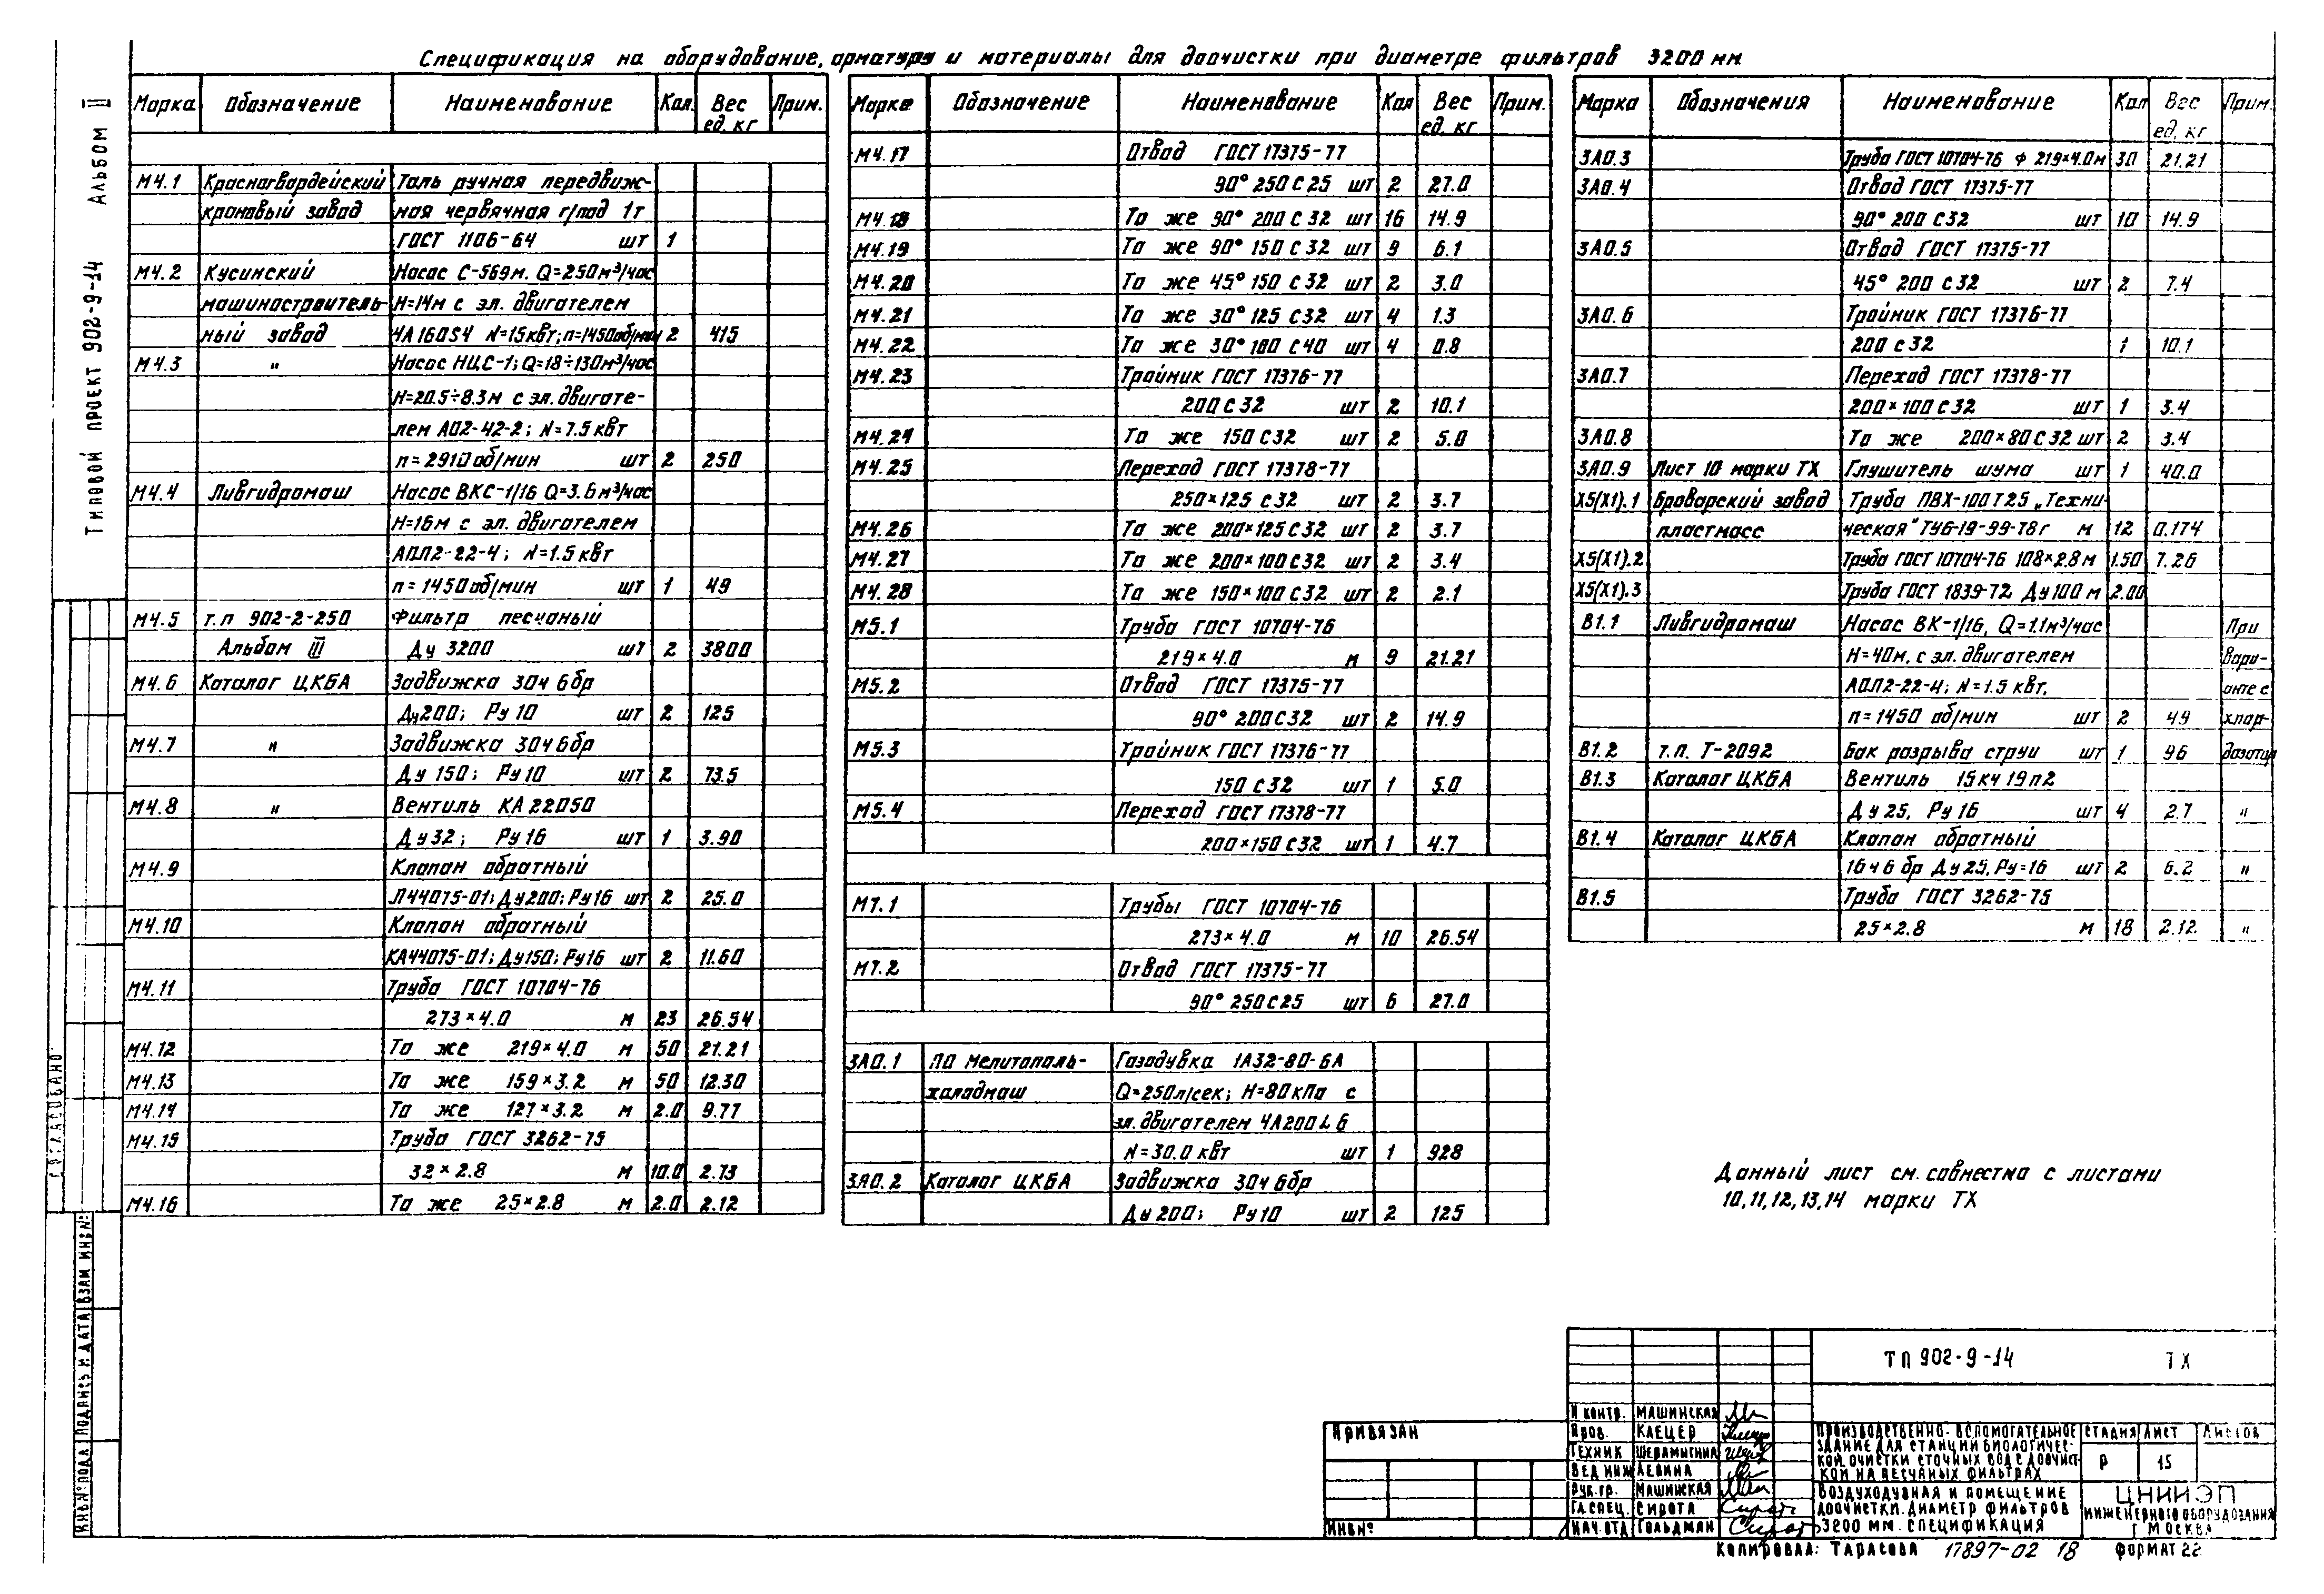 Спецификация на оборудование, арматуру и материалы для доочистки при диаметре фильтров 3200 мм
Типовой проект 902-9-14 Альбом III
Марка Обозначение Наименование Кол. Вес ед. кг Прим.
М4.1 Красногвардейский Таль ручная передвиж-
крановый завод ная червячная г/под 1т
ГОСТ 1106-64 шт 1
М4.2 Кусинский Насос С-569м. Q=250м³/час
машиностроитель- Н=14м с эл. двигателем
ный завод 4А160S4 N=15квт; n=1450об/мин 2 415
М4.3 " Насос НЦС-1; Q=18÷130м³/час
Н=20.5÷8.3м с эл. двигате-
лем АО2-42-2; N=7.5квт
n=2910об/мин шт 2 250
М4.4 Ливгидромаш Насос ВКС-1/16 Q=3.6м³/час
Н=16м с эл. двигателем
АОЛ2-22-4; N=1.5квт
n=1450об/мин шт 1 49
М4.5 т.п 902-2-250 Фильтр песчаный
Альбом III Ду 3200 шт 2 3800
М4.6 Каталог ЦКБА Задвижка 30ч6бр
Ду200; Ру10 шт 2 125
М4.7 " Задвижка 30ч6бр
Ду 150; Ру10 шт 2 73.5
М4.8 " Вентиль КА 22050
Ду32; Ру16 шт 1 3.90
М4.9 Клапан обратный
Л44075-01; Ду200; Ру16 шт 2 25.0
М4.10 Клапан обратный
КА44075-01; Ду150; Ру16 шт 2 11.60
М4.11 Труба ГОСТ 10704-76
273×4.0 м 23 26.54
М4.12 То же 219×4.0 м 50 21.21
М4.13 То же 159×3.2 м 50 12.30
М4.14 То же 127×3.2 м 2.0 9.77
М4.15 Труба ГОСТ 3262-75
32×2.8 м 10.0 2.73
М4.16 То же 25×2.8 м 2.0 2.12
Марка Обозначение Наименование Кол Вес ед. кг Прим.
М4.17 Отвод ГОСТ 17375-77
90° 250 С 25 шт 2 27.0
М4.18 То же 90° 200 С 32 шт 16 14.9
М4.19 То же 90° 150 С 32 шт 9 6.1
М4.20 То же 45° 150 С 32 шт 2 3.0
М4.21 То же 30° 125 С32 шт 4 1.3
М4.22 То же 30° 100 С40 шт 4 0.8
М4.23 Тройник ГОСТ 17376-77
200 С 32 шт 2 10.1
М4.24 То же 150 С32 шт 2 5.0
М4.25 Переход ГОСТ 17378-77
250×125 С32 шт 2 3.7
М4.26 То же 200×125С32 шт 2 3.7
М4.27 То же 200×100С32 шт 2 3.4
М4.28 То же 150×100С32 шт 2 2.1
М5.1 Труба ГОСТ 10704-76
219×4.0 м 9 21.21
М5.2 Отвод ГОСТ 17375-77
90° 200С32 шт 2 14.9
М5.3 Тройник ГОСТ 17376-77
150 С32 шт 1 5.0
М5.4 Переход ГОСТ 17378-77
200×150 С32 шт 1 4.7
М7.1 Трубы ГОСТ 10704-76
273×4.0 м 10 26.54
М7.2 Отвод ГОСТ 17375-77
90° 250С25 шт 6 27.0
ЗА0.1 ПО Мелитополь- Газодувка 1А32-80-6А
холодмаш Q=250л/сек; Н=80кПа с
эл. двигателем 4А200L6
N=30.0 квт шт 1 928
ЗА0.2 Каталог ЦКБА Задвижка 30ч6бр
Ду 200; Ру10 шт 2 125
Марка Обозначения Наименование Кол Вес ед. кг Прим.
ЗА0.3 Труба ГОСТ 10704-76 ф 219×4.0м 30 21.21
ЗА0.4 Отвод ГОСТ 17375-77
90° 200 С32 шт 10 14.9
ЗА0.5 Отвод ГОСТ 17375-77
45° 200 С32 шт 2 7.4
ЗА0.6 Тройник ГОСТ 17376-77
200 С32 1 10.1
ЗА0.7 Переход ГОСТ 17378-77
200×100С32 шт 1 3.4
ЗА0.8 То же 200×80С32 шт 2 3.4
ЗА0.9 Лист 10 марки ТХ Глушитель шума шт 1 40.0
Х5(Х1).1 Броварский завод Труба ПВХ-100Т25 „Техни-
пластмасс ческая" ТУ6-19-99-78г м 12 0.174
Х5(Х1).2 Труба ГОСТ 10704-76 108×2.8м 1.50 7.26
Х5(Х1).3 Труба ГОСТ 1839-72 Ду100 м 2.00
В1.1 Ливгидромаш Насос ВК-1/16, Q=1.1м³/час При
Н=40м, с эл. двигателем вари-
АОЛ2-22-4; N=1.5 квт, анте с
n=1450 об/мин шт 2 49 хлор-
В1.2 т.п. Т-2092 Бак разрыва струи шт 1 96 дозатор
В1.3 Каталог ЦКБА Вентиль 15кч19п2
Ду25, Ру16 шт 4 2.7 "
В1.4 Каталог ЦКБА Клапан обратный
16ч6бр Ду25, Ру=16 шт 2 6.2 "
В1.5 Труба ГОСТ 3262-75
25×2.8 м 18 2.12 "
Данный лист см. совместно с листами
10, 11, 12, 13, 14 марки ТХ
Согласовано:
Инв.№подл Подпись и дата Взам инв№
ТП 902-9-14 ТХ
Привязан
Инв№
Н контр. Машинская
Пров. Каецер
Техник
Вед инж Левина
Рук.гр. Машинская
Гл.спец. Сирота
Нач.отд Гольдман
Производственно-вспомогательное
здание для станции биологичес-
кой очистки сточных вод с доочист-
кой на песчаных фильтрах
Стадия Лист Листов
Р 15
Воздуходувная и помещение
доочистки. Диаметр фильтров
3200 мм. Спецификация
ЦНИИЭП
инженерного оборудования
г Москва
Копировал: Тарасова 17897-02 18 Формат 22